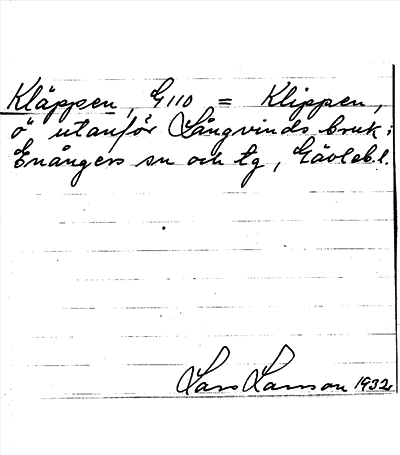 Kläppen, G 110 = Klippen,
ö utanför Långvinds bruk i
Enångers sn och tg, Gävleb.l.
Lars Larsson 1932